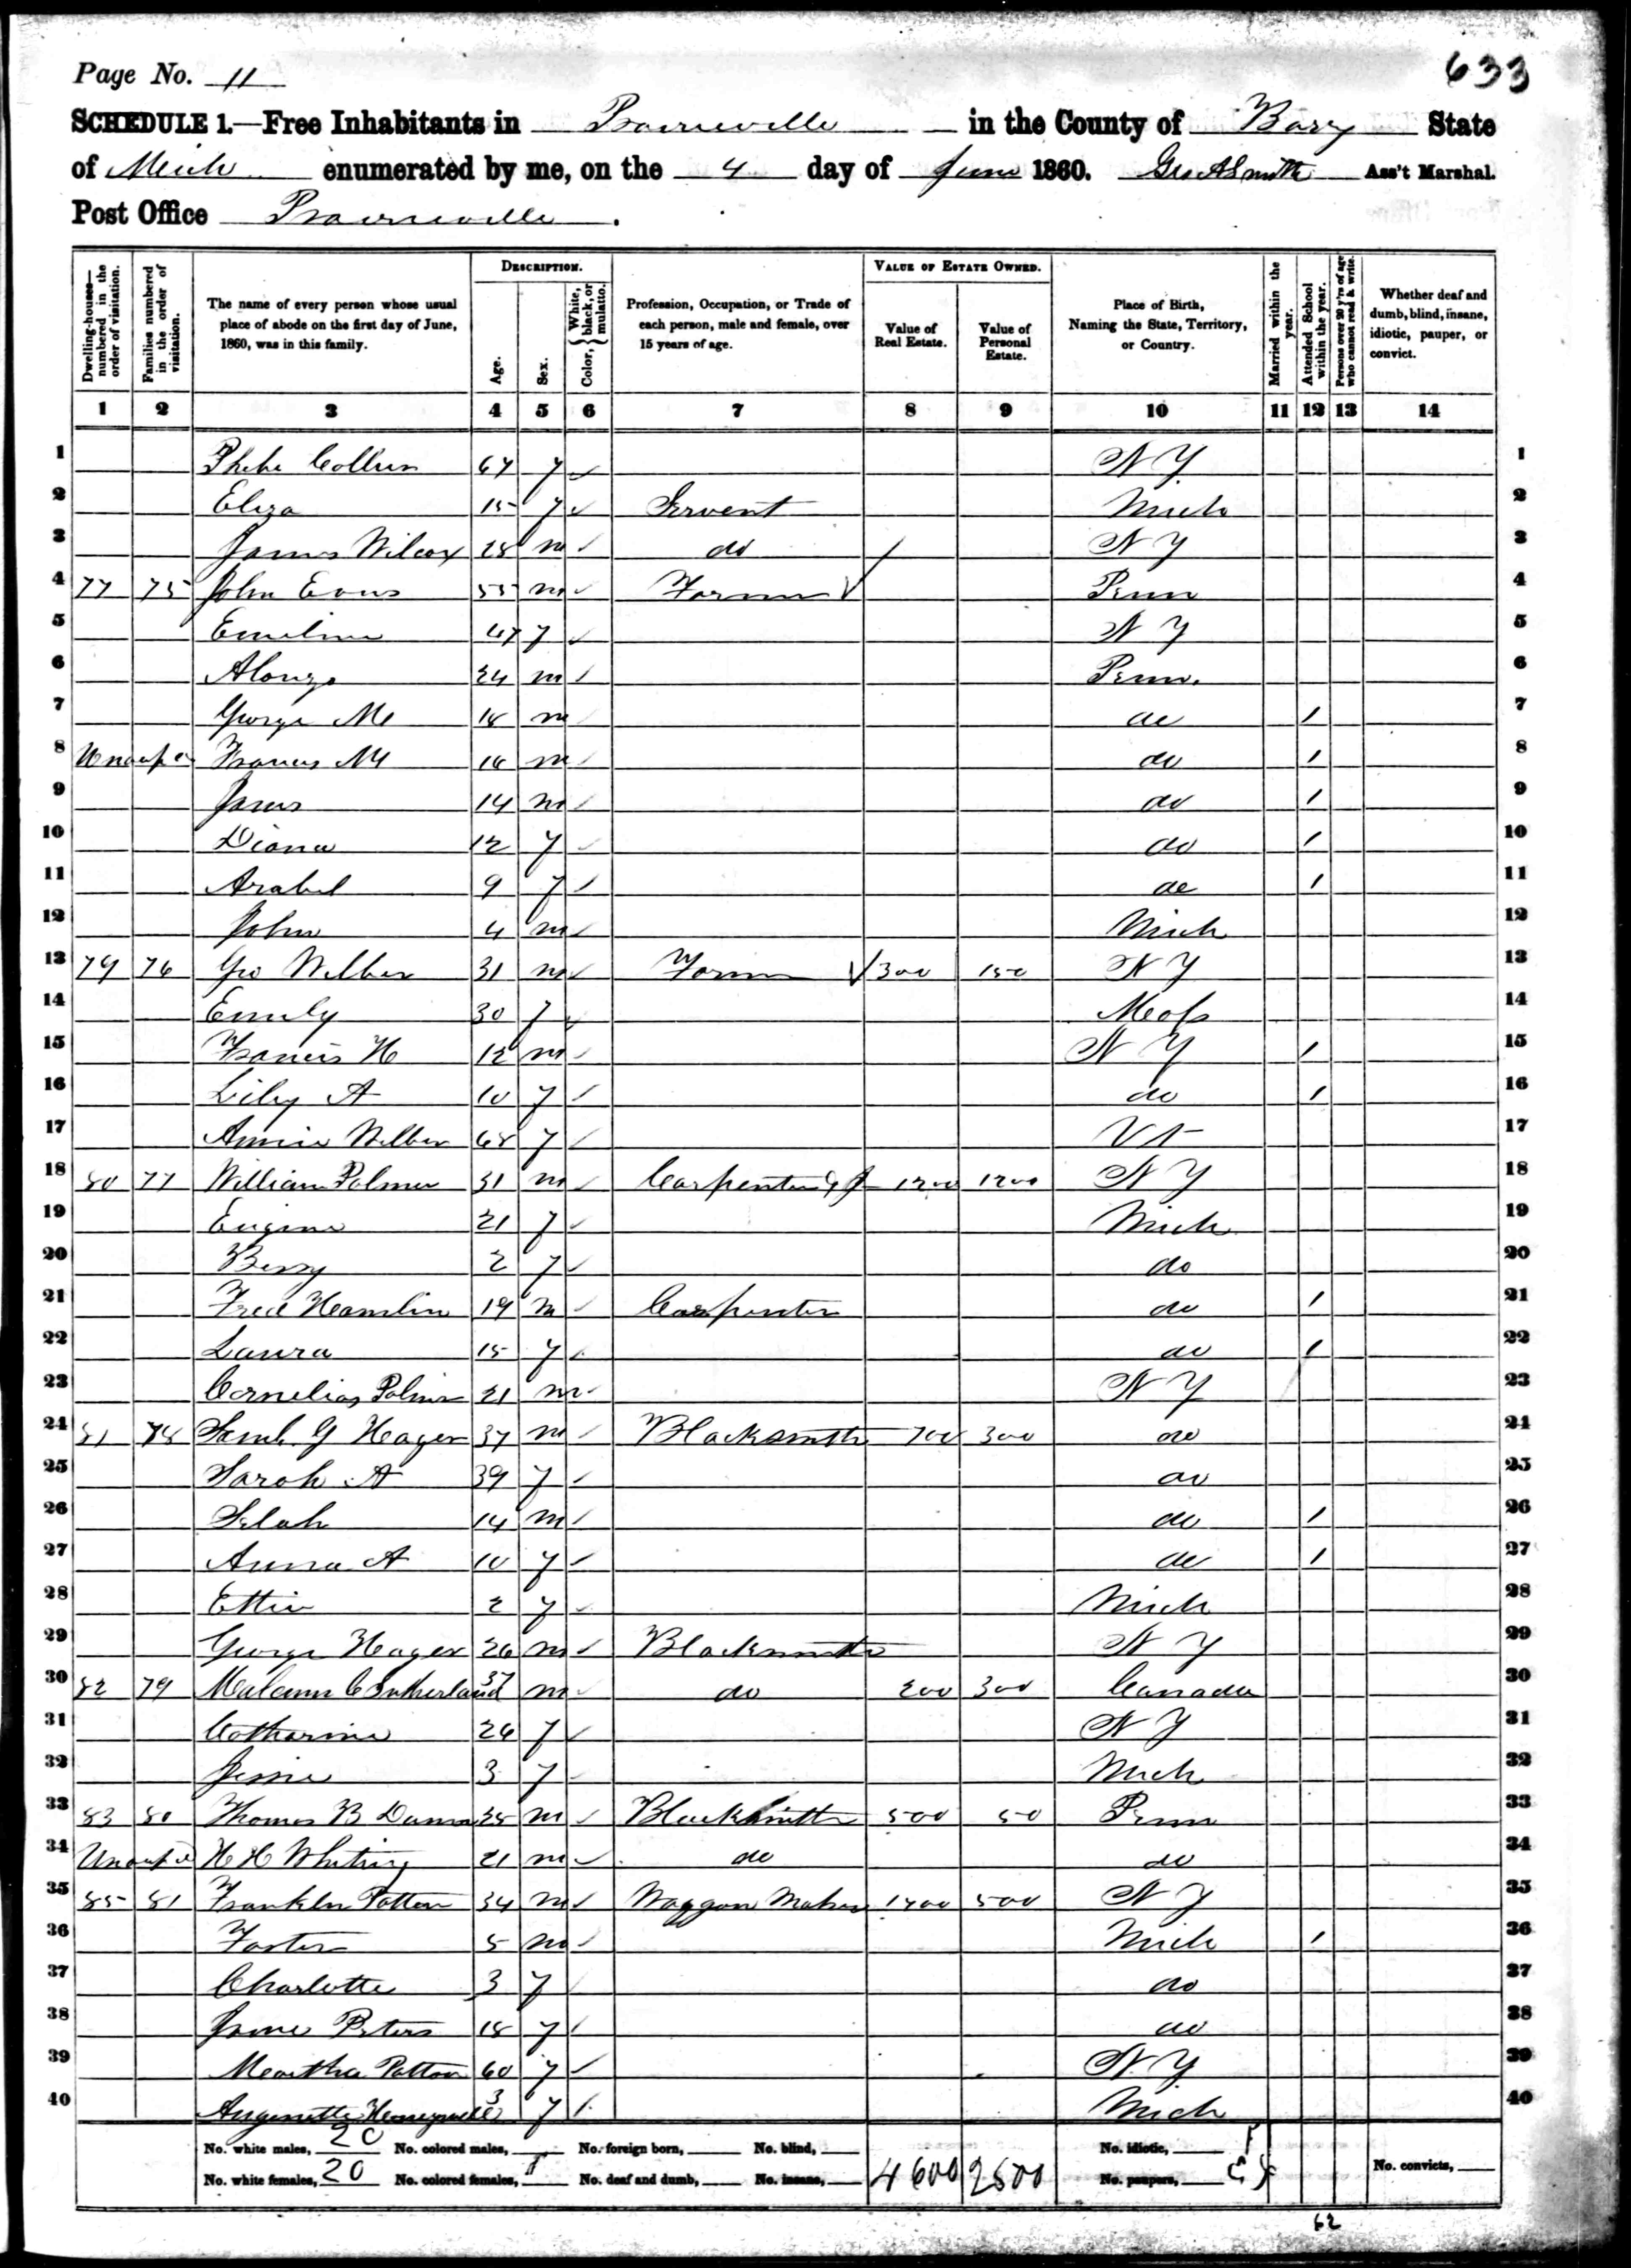 Page No. 11
633
SCHEDULE 1.—Free Inhabitants in Prairieville in the County of Barry State
of Mich enumerated by me, on the 4 day of June 1860. Geo A Smith Ass't Marshal.
Post Office Prairieville.
Dwelling-houses—numbered in the order of visitation.
Families numbered in the order of visitation.
The name of every person whose usual place of abode on the first day of June, 1860, was in this family.
DESCRIPTION.
Age.
Sex.
Color, { White, black, or mulatto.
Profession, Occupation, or Trade of each person, male and female, over 15 years of age.
VALUE OF ESTATE OWNED.
Value of Real Estate.
Value of Personal Estate.
Place of Birth, Naming the State, Territory, or Country.
Married within the year.
Attended School within the year.
Persons over 20 y'rs of age who cannot read & write.
Whether deaf and dumb, blind, insane, idiotic, pauper, or convict.
1 2 3 4 5 6 7 8 9 10 11 12 13 14
1 Phebe Collins 67 f ✓ N Y 1
2 Eliza 15 f ✓ Servent Mich 2
3 James Wilcox 28 m ✓ do / N Y 3
4 77 75 John Evans 55 m ✓ Farmer ✓ Penn 4
5 Emeline 47 f ✓ N Y 5
6 Alonzo 24 m ✓ Penn. 6
7 George M 18 m ✓ do / 7
8 Unocup'd Francis M 16 m ✓ do / 8
9 James 14 m ✓ do / 9
10 Diana 12 f ✓ do / 10
11 Arabel 9 f ✓ do / 11
12 John 4 m ✓ Mich 12
13 79 76 Geo Wilber 31 m ✓ Farmer ✓ 300 150 N Y 13
14 Emily 30 f ✓ Mass 14
15 Francis H 12 m ✓ N Y / 15
16 Lily A 10 f ✓ do / 16
17 Annie Wilber 68 f ✓ Vt 17
18 80 77 William Palmer 31 m ✓ Carpenter & J 1200 1200 N Y 18
19 Eugene 21 f ✓ Mich 19
20 2 f ✓ do 20
21 Fred Hamlin 19 m ✓ Carpenter do / 21
22 Laura 15 f ✓ do / 22
23 Cornelias Palmer 21 m ✓ N Y 23
24 81 78 Saml. G Hager 37 m ✓ Blacksmith 700 300 do 24
25 Sarah A 39 f ✓ do 25
26 Selah 14 m ✓ do / 26
27 Anna A 10 f ✓ do / 27
28 Ettie 2 f ✓ Mich 28
29 George Hager 26 m ✓ Blacksmith N Y 29
30 82 79 Malcum C Sutherland 37 m ✓ do 200 300 Canada 30
31 Catharine 26 f ✓ N Y 31
32 Jessie 3 f ✓ Mich 32
33 83 80 Thomas B Dunn 25 m ✓ Blacksmith 500 50 Penn 33
34 Unocup'd H H Whiting 21 m ✓ do do 34
35 85 81 Franklin Patton 34 m ✓ Waggon Maker 1700 500 N Y 35
36 Foster 5 m ✓ Mich / 36
37 Charlotte 3 f do 37
38 Jane Peters 18 f ✓ do 38
39 Martha Patton 60 f ✓ N Y 39
40 Angenette Honeywell 3 f ✓ Mich 40
No. white males, 20 No. colored males, No. foreign born, No. blind, No. idiotic,
No. white females, 20 No. colored females, No. deaf and dumb, No. insane, 4600 2500 No. paupers, No. convicts,
62